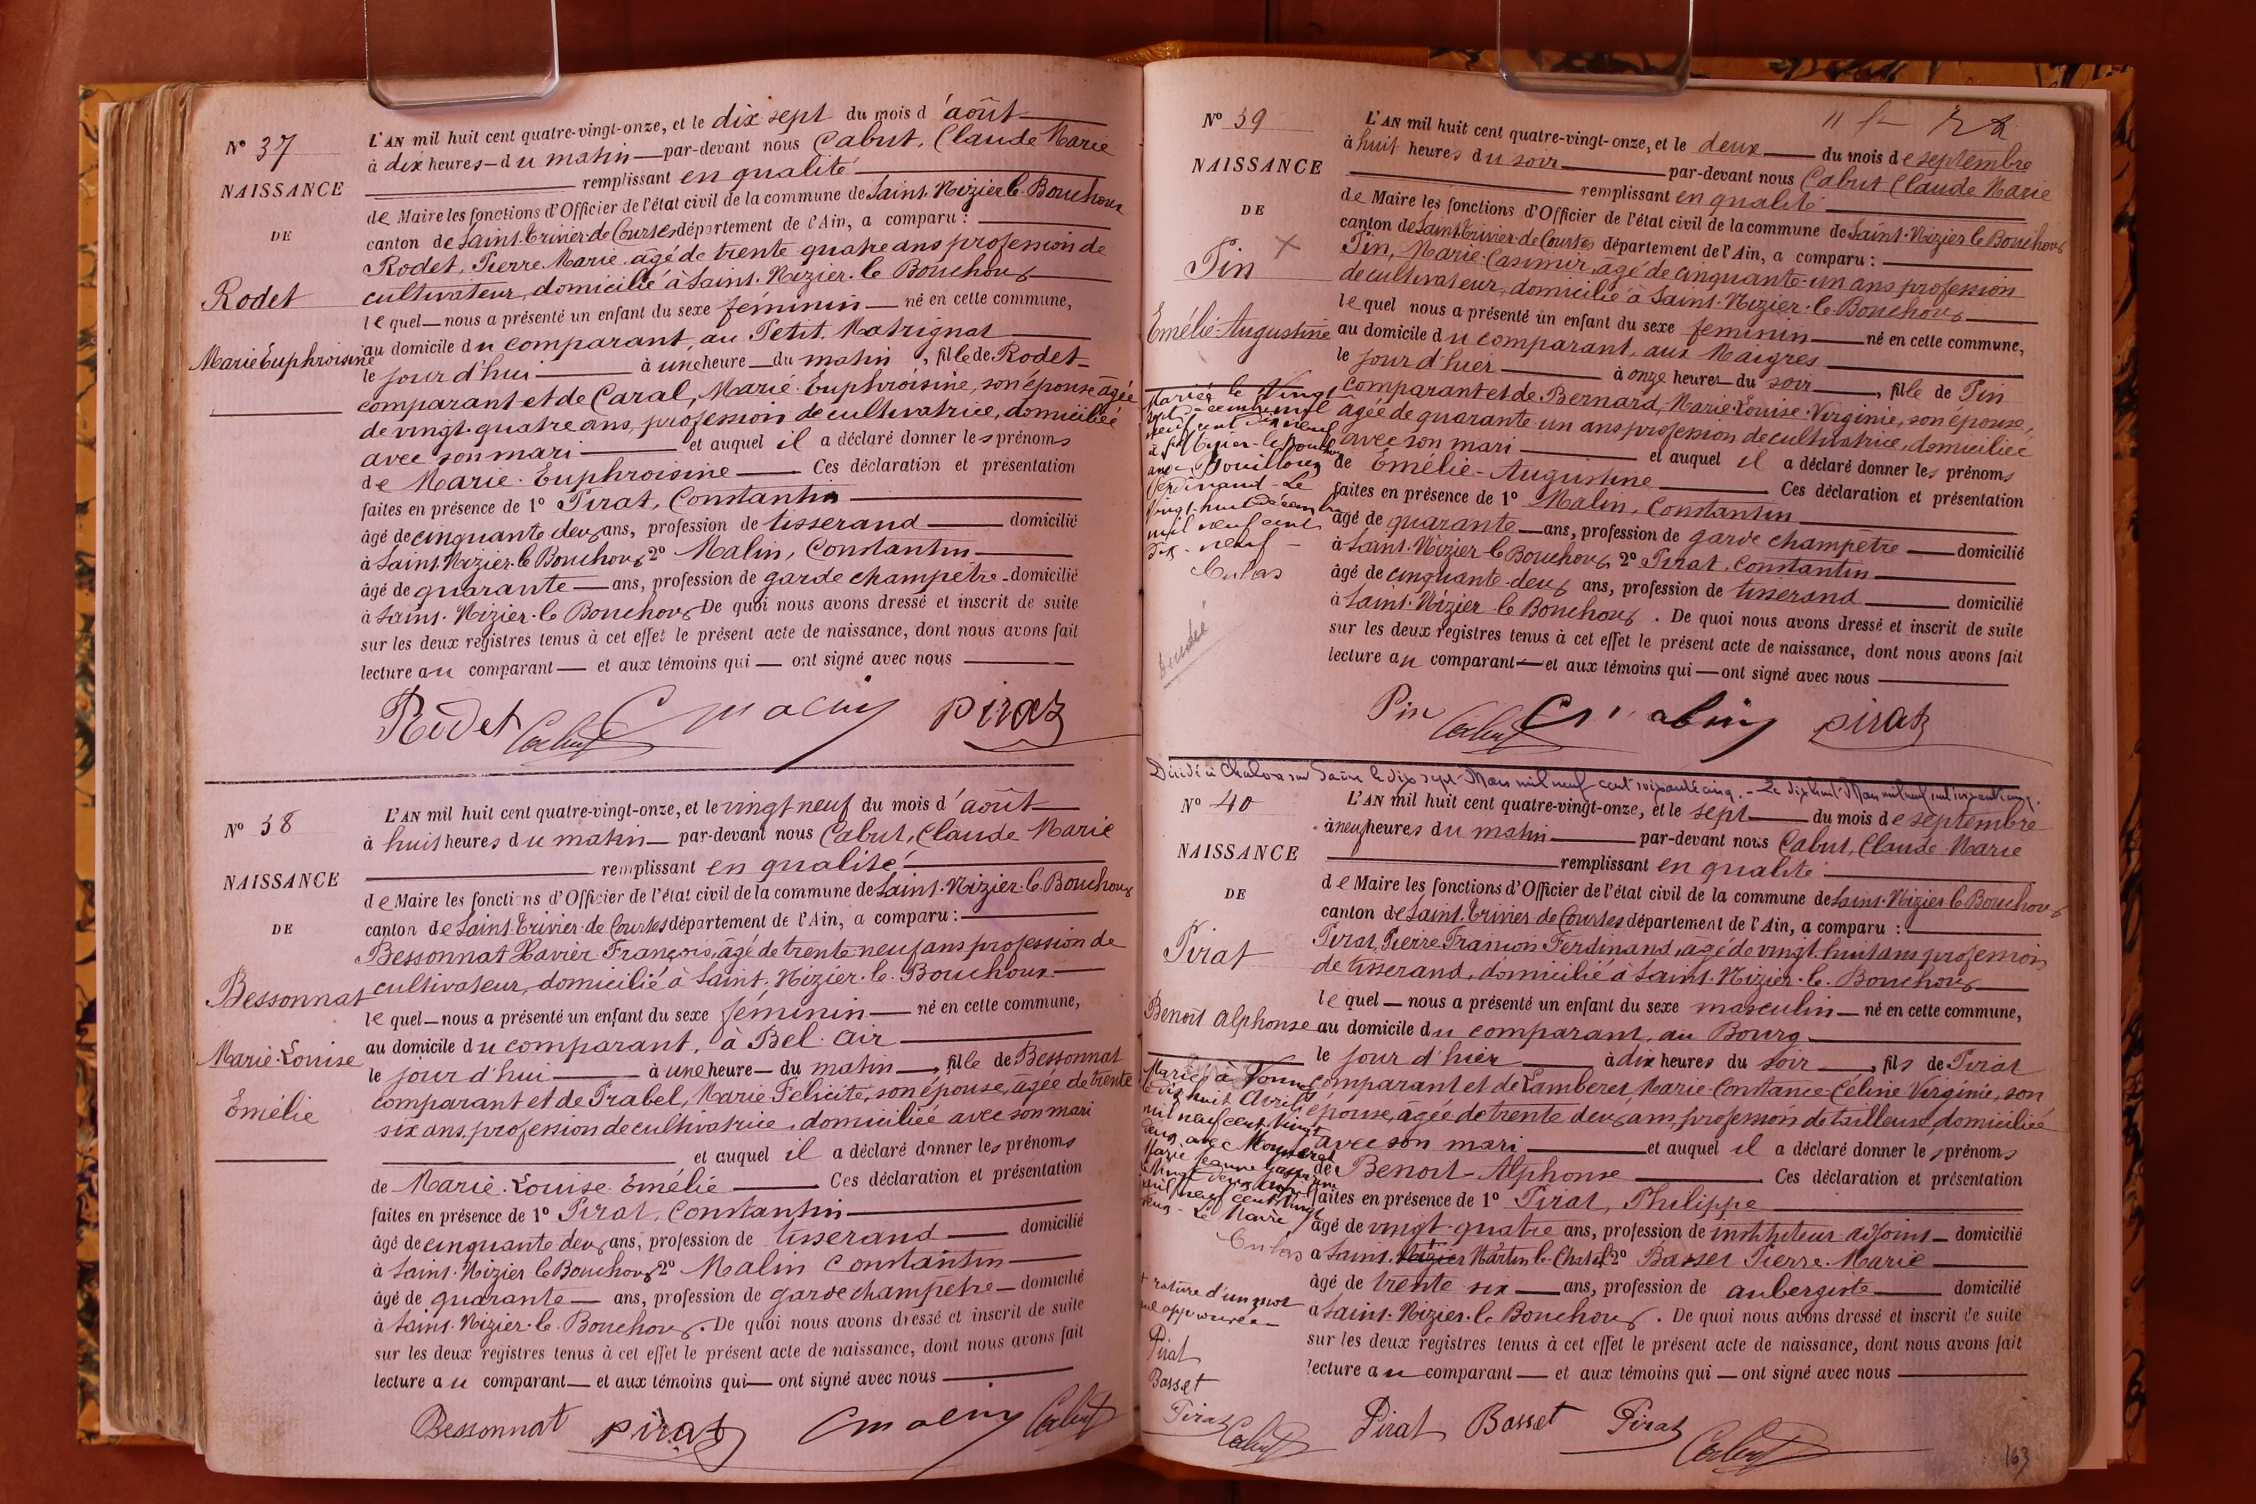 N° 37
NAISSANCE
DE
Rodet
Marie Euphroisine
L'AN mil huit cent quatre-vingt-onze, et le dix sept du mois d'août
à dix heures du matin par-devant nous Cabut, Claude Marie
remplissant en qualité
de Maire les fonctions d'Officier de l'état civil de la commune de Saint-Nizier-le-Bouchoux
canton de Saint-Trivier-de-Courtes département de l'Ain, a comparu :
Rodet, Pierre Marie âgé de trente quatre ans profession de
cultivateur, domicilié à Saint-Nizier-le-Bouchoux
lequel nous a présenté un enfant du sexe féminin né en cette commune,
au domicile du comparant, au Petit Matrignat
le jour d'hui à une heure du matin, fille de Rodet
comparant et de Caral, Marie Euphroisine, son épouse âgée
de vingt-quatre ans, profession de cultivatrice, domiciliée
avec son mari et auquel il a déclaré donner les prénoms
de Marie Euphroisine Ces déclaration et présentation
faites en présence de 1° Pirat, Constantin
âgé de cinquante deux ans, profession de tisserand domicilié
à Saint-Nizier-le-Bouchoux 2° Malin, Constantin
âgé de quarante ans, profession de garde champêtre domicilié
à Saint-Nizier-le-Bouchoux De quoi nous avons dressé et inscrit de suite
sur les deux registres tenus à cet effet le présent acte de naissance, dont nous avons fait
lecture au comparant et aux témoins qui ont signé avec nous
Rodet Cabut C Malin Pirat
N° 38
NAISSANCE
DE
Bessonnat
Marie-Louise
Emélie
L'AN mil huit cent quatre-vingt-onze, et le vingt neuf du mois d'août
à huit heures du matin par-devant nous Cabut, Claude Marie
remplissant en qualité
de Maire les fonctions d'Officier de l'état civil de la commune de Saint-Nizier-le-Bouchoux
canton de Saint-Trivier-de-Courtes département de l'Ain, a comparu :
Bessonnat Xavier François, âgé de trente-neuf ans profession de
cultivateur, domicilié à Saint-Nizier-le-Bouchoux
lequel nous a présenté un enfant du sexe féminin né en cette commune,
au domicile du comparant, à Bel-air
le jour d'hui à une heure du matin, fille de Bessonnat
comparant et de Prabel, Marie Félicité, son épouse, âgée de trente
six ans, profession de cultivatrice, domiciliée avec son mari
et auquel il a déclaré donner les prénoms
de Marie-Louise Emélie Ces déclaration et présentation
faites en présence de 1° Pirat, Constantin
âgé de cinquante deux ans, profession de tisserand domicilié
à Saint-Nizier le Bouchoux 2° Malin Constantin
âgé de quarante ans, profession de garde champêtre domicilié
à Saint-Nizier-le-Bouchoux. De quoi nous avons dressé et inscrit de suite
sur les deux registres tenus à cet effet le présent acte de naissance, dont nous avons fait
lecture au comparant et aux témoins qui ont signé avec nous
Bessonnat Pirat C Malin Cabut
N° 39
NAISSANCE
DE
Pin
Emélie-Augustine
Mariée le Vingt
sept décembre mil
neuf cent dix neuf
à St Nizier-le-Bouchoux
avec Bouilloux
Ferdinand. Le
vingt-huit décembre
mil neuf cent
dix-neuf
Décédée
L'AN mil huit cent quatre-vingt-onze, et le deux du mois de septembre
à huit heures du soir par-devant nous Cabut Claude Marie
remplissant en qualité
de Maire les fonctions d'Officier de l'état civil de la commune de Saint-Nizier le Bouchoux
canton de Saint-Trivier-de-Courtes département de l'Ain, a comparu :
Pin, Marie-Casimir, âgé de cinquante-un ans profession
de cultivateur, domicilié à Saint-Nizier-le-Bouchoux
lequel nous a présenté un enfant du sexe féminin né en cette commune,
au domicile du comparant, aux Maigres
le jour d'hier à onze heures du soir, fille de Pin
comparant et de Bernard, Marie-Louise-Virginie, son épouse,
âgée de quarante un ans profession de cultivatrice, domiciliée
avec son mari et auquel il a déclaré donner les prénoms
de Emélie-Augustine Ces déclaration et présentation
faites en présence de 1° Malin, Constantin
âgé de quarante ans, profession de garde champêtre domicilié
à Saint-Nizier le Bouchoux 2° Pirat, Constantin
âgé de cinquante-deux ans, profession de tisserand domicilié
à Saint-Nizier-le Bouchoux. De quoi nous avons dressé et inscrit de suite
sur les deux registres tenus à cet effet le présent acte de naissance, dont nous avons fait
lecture au comparant et aux témoins qui ont signé avec nous
Pin Cabut C Malin Pirat
Décédé à Chalon sur Saône le dix sept Mars mil neuf cent soixante cinq. - Le dix huit Mars mil neuf cent soixante cinq.
N° 40
NAISSANCE
DE
Pirat
Benoît Alphonse
Marié à
le dix huit Avril
mil neuf cent vingt
deux avec
Marie Jeanne
vingt deux Avril
mil neuf cent vingt
deux - Le Maire
rature d'un mot
nul approuvée
Pirat
Basset
Pirat
Cabut
L'AN mil huit cent quatre-vingt-onze, et le sept du mois de septembre
à neuf heures du matin par-devant nous Cabut, Claude Marie
remplissant en qualité
de Maire les fonctions d'Officier de l'état civil de la commune de Saint-Nizier le Bouchoux
canton de Saint-Trivier de Courtes département de l'Ain, a comparu :
Pirat, Pierre François Ferdinand, âgé de vingt-huit ans profession
de tisserand, domicilié à Saint-Nizier-le-Bouchoux
lequel nous a présenté un enfant du sexe masculin né en cette commune,
au domicile du comparant, au Bourg
le jour d'hier à dix heures du soir, fils de Pirat
comparant et de Lamberet, Marie-Constance-Céline Virginie, son
épouse, âgée de trente deux ans, profession de tailleuse, domiciliée
avec son mari et auquel il a déclaré donner les prénoms
de Benoît-Alphonse Ces déclaration et présentation
faites en présence de 1° Pirat, Philippe
âgé de vingt-quatre ans, profession de instituteur-adjoint domicilié
à Saint Nizier Martin-le-Chatel 2° Basset Pierre-Marie
âgé de trente six ans, profession de aubergiste domicilié
à Saint-Nizier-le Bouchoux. De quoi nous avons dressé et inscrit de suite
sur les deux registres tenus à cet effet le présent acte de naissance, dont nous avons fait
lecture au comparant et aux témoins qui ont signé avec nous
Pirat Basset Pirat Cabut
163